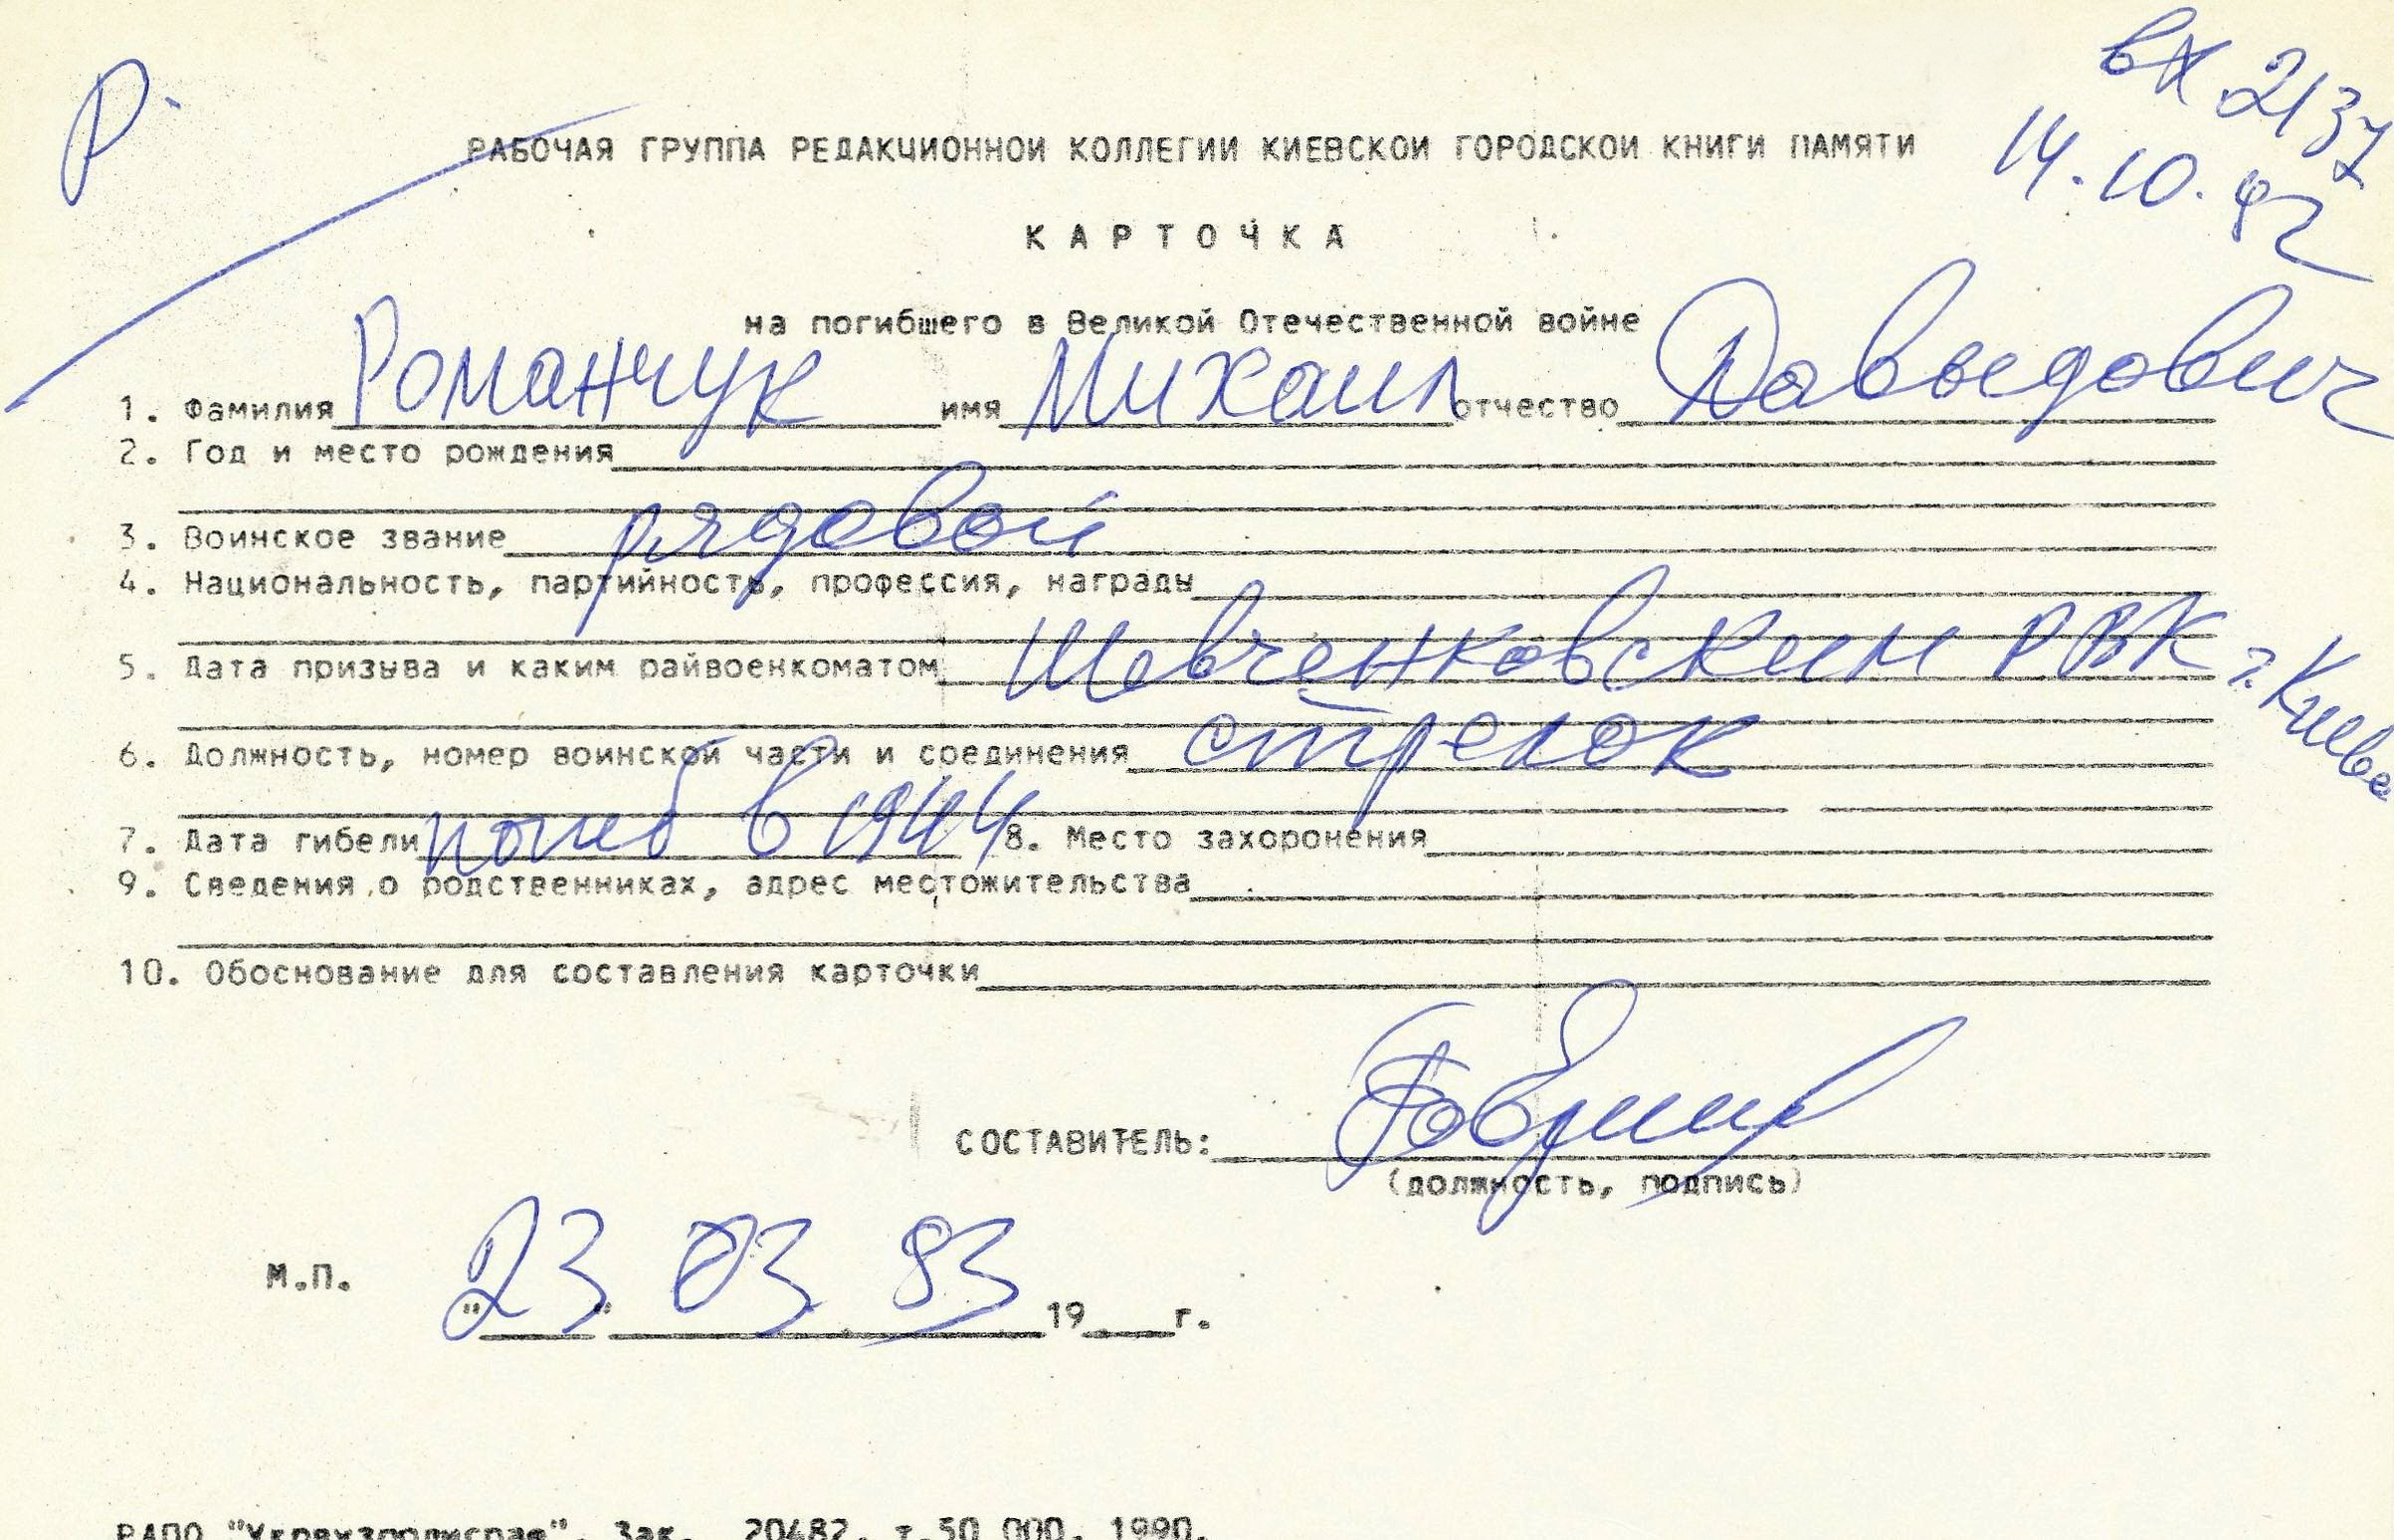 Р.
вх 2137
14.10.92
РАБОЧАЯ ГРУППА РЕДАКЦИОННОЙ КОЛЛЕГИИ КИЕВСКОЙ ГОРОДСКОЙ КНИГИ ПАМЯТИ
КАРТОЧКА
на погибшего в Великой Отечественной войне
1. Фамилия Романчук имя Михаил отчество Давыдович
2. Год и место рождения
3. Воинское звание рядовой
4. Национальность, партийность, профессия, награды
5. Дата призыва и каким райвоенкоматом Шевченковским РВК г. Киева
6. Должность, номер воинской части и соединения стрелок
7. Дата гибели погиб в 1944 8. Место захоронения
9. Сведения о родственниках, адрес местожительства
10. Обоснование для составления карточки
СОСТАВИТЕЛЬ:
(должность, подпись)
М.П.
"23" 03 93 19 г.
РАПО "Укрвузполиграф". Зак. 20482. т.50 000. 1990.